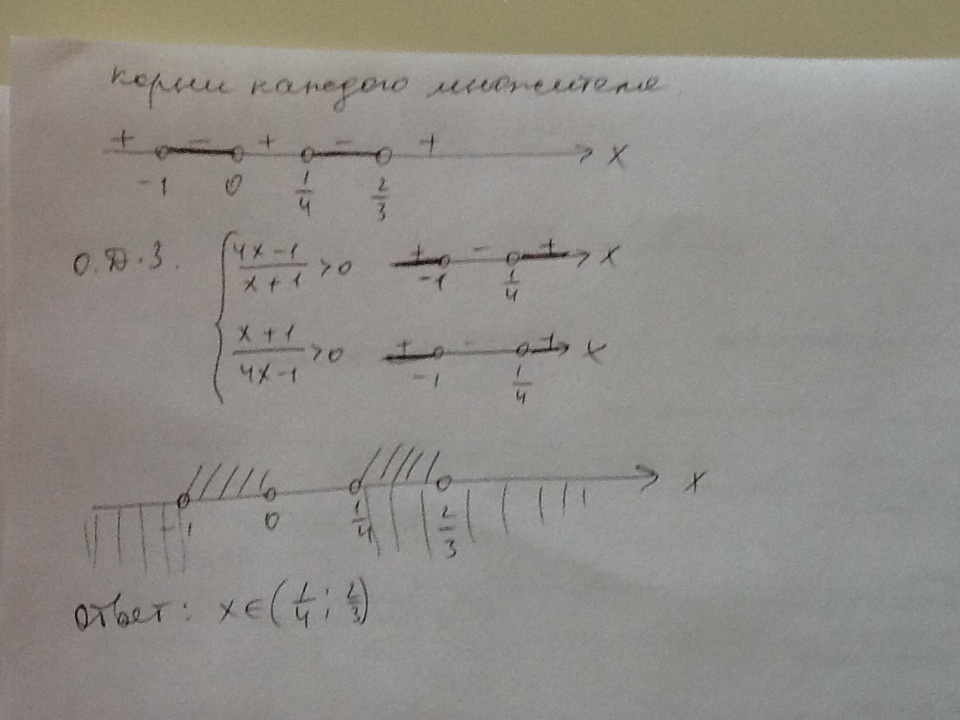 корни каждого множителя
+ - + - + x
-1 0 1/4 2/3
О.Д.З. { (4x-1)/(x+1) > 0 + - + x
-1 1/4
(x+1)/(4x-1) > 0 + - + x
-1 1/4
x
-1 0 1/4 2/3
Ответ: x∈(1/4; 2/3)